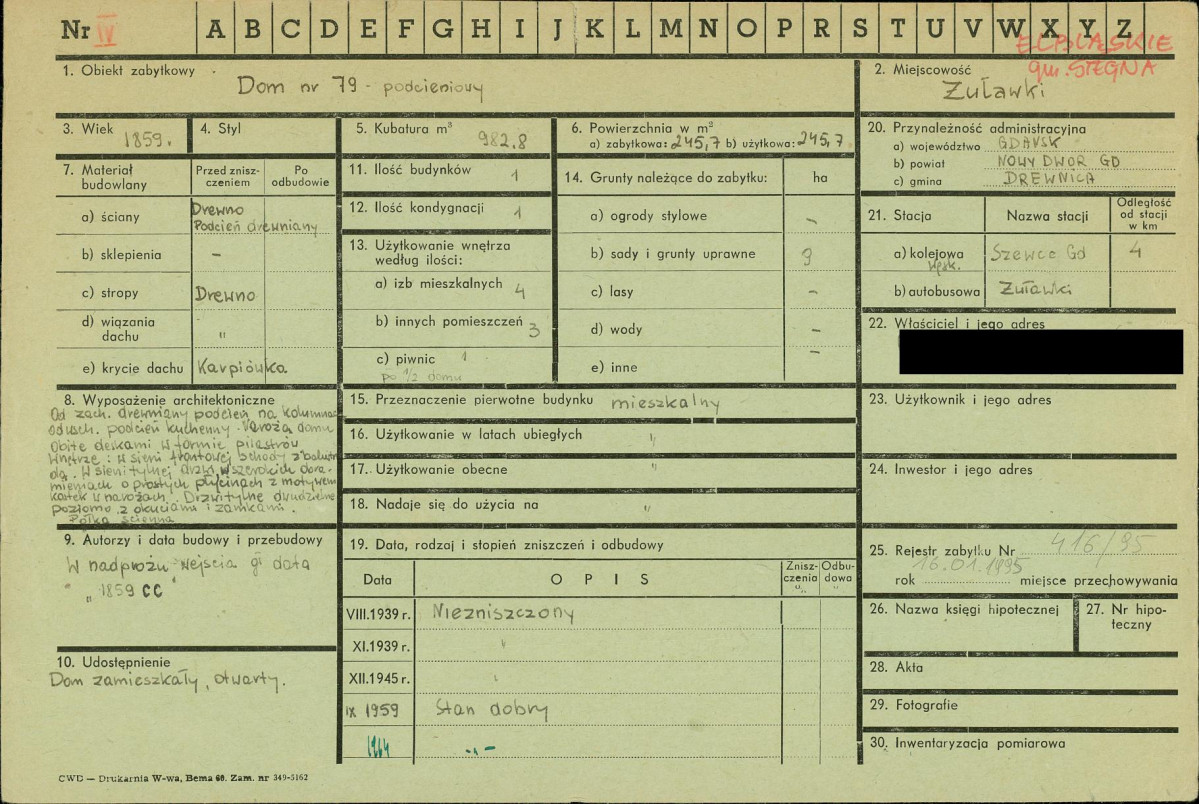 Nr IV A B C D E F G H I J K L M N O P R S T U V W X Y Z
ELBLĄSKIE
gm. STEGNA
1. Obiekt zabytkowy
Dom nr 79 - podcieniowy
2. Miejscowość
Żuławki
3. Wiek 1859.
4. Styl
5. Kubatura m³ 982.8
6. Powierzchnia w m²
a) zabytkowa: 245,7 b) użytkowa: 245,7
20. Przynależność administracyjna
a) województwo GDAŃSK
b) powiat NOWY DWÓR GD
c) gmina DREWNICA
7. Materiał budowlany
Przed zniszczeniem
Po odbudowie
a) ściany Drewno
Podcień drewniany
b) sklepienia -
c) stropy Drewno
d) wiązania dachu "
e) krycie dachu Karpiówka
11. Ilość budynków 1
12. Ilość kondygnacji 1
13. Użytkowanie wnętrza
według ilości:
a) izb mieszkalnych 4
b) innych pomieszczeń 3
c) piwnic 1
po 1/2 domu
14. Grunty należące do zabytku: ha
a) ogrody stylowe -
b) sady i grunty uprawne 9
c) lasy -
d) wody -
e) inne -
21. Stacja Nazwa stacji Odległość od stacji w km
a) kolejowa Szewce Gd 4
wąsk.
b) autobusowa Żuławki
22. Właściciel i jego adres
8. Wyposażenie architektoniczne
Od zach. drewniany podcień na kolumnach
od wsch. podcień kuchenny. Naroża domu
obite deskami w formie pilastrów
Wnętrze: w sieni frontowej schody z balustra
dą. W sieni tylnej drzwi w szerokich obra-
mieniach o prostych płycinach z motywem
kostek w narożach. Drzwi tylne dwudzielne
poziomo z okuciami i zamkami.
Półka ścienna
15. Przeznaczenie pierwotne budynku mieszkalny
16. Użytkowanie w latach ubiegłych "
17. Użytkowanie obecne "
18. Nadaje się do użycia na "
23. Użytkownik i jego adres
24. Inwestor i jego adres
9. Autorzy i data budowy i przebudowy
W nadprożu wejścia gł data
„1859 CC"
19. Data, rodzaj i stopień zniszczeń i odbudowy
Data OPIS Zniszczenia "/₀ Odbudowa "/₀
VIII.1939 r. Niezniszczony
XI.1939 r. "
XII.1945 r. "
IX 1959 Stan dobry
1964 -„-
25. Rejestr zabytku Nr 416/95
16.01.1995
rok miejsce przechowywania
26. Nazwa księgi hipotecznej
27. Nr hipoteczny
10. Udostępnienie
Dom zamieszkały, otwarty.
28. Akta
29. Fotografie
30. Inwentaryzacja pomiarowa
CWD — Drukarnia W-wa, Bema 60. Zam. nr 349-5162